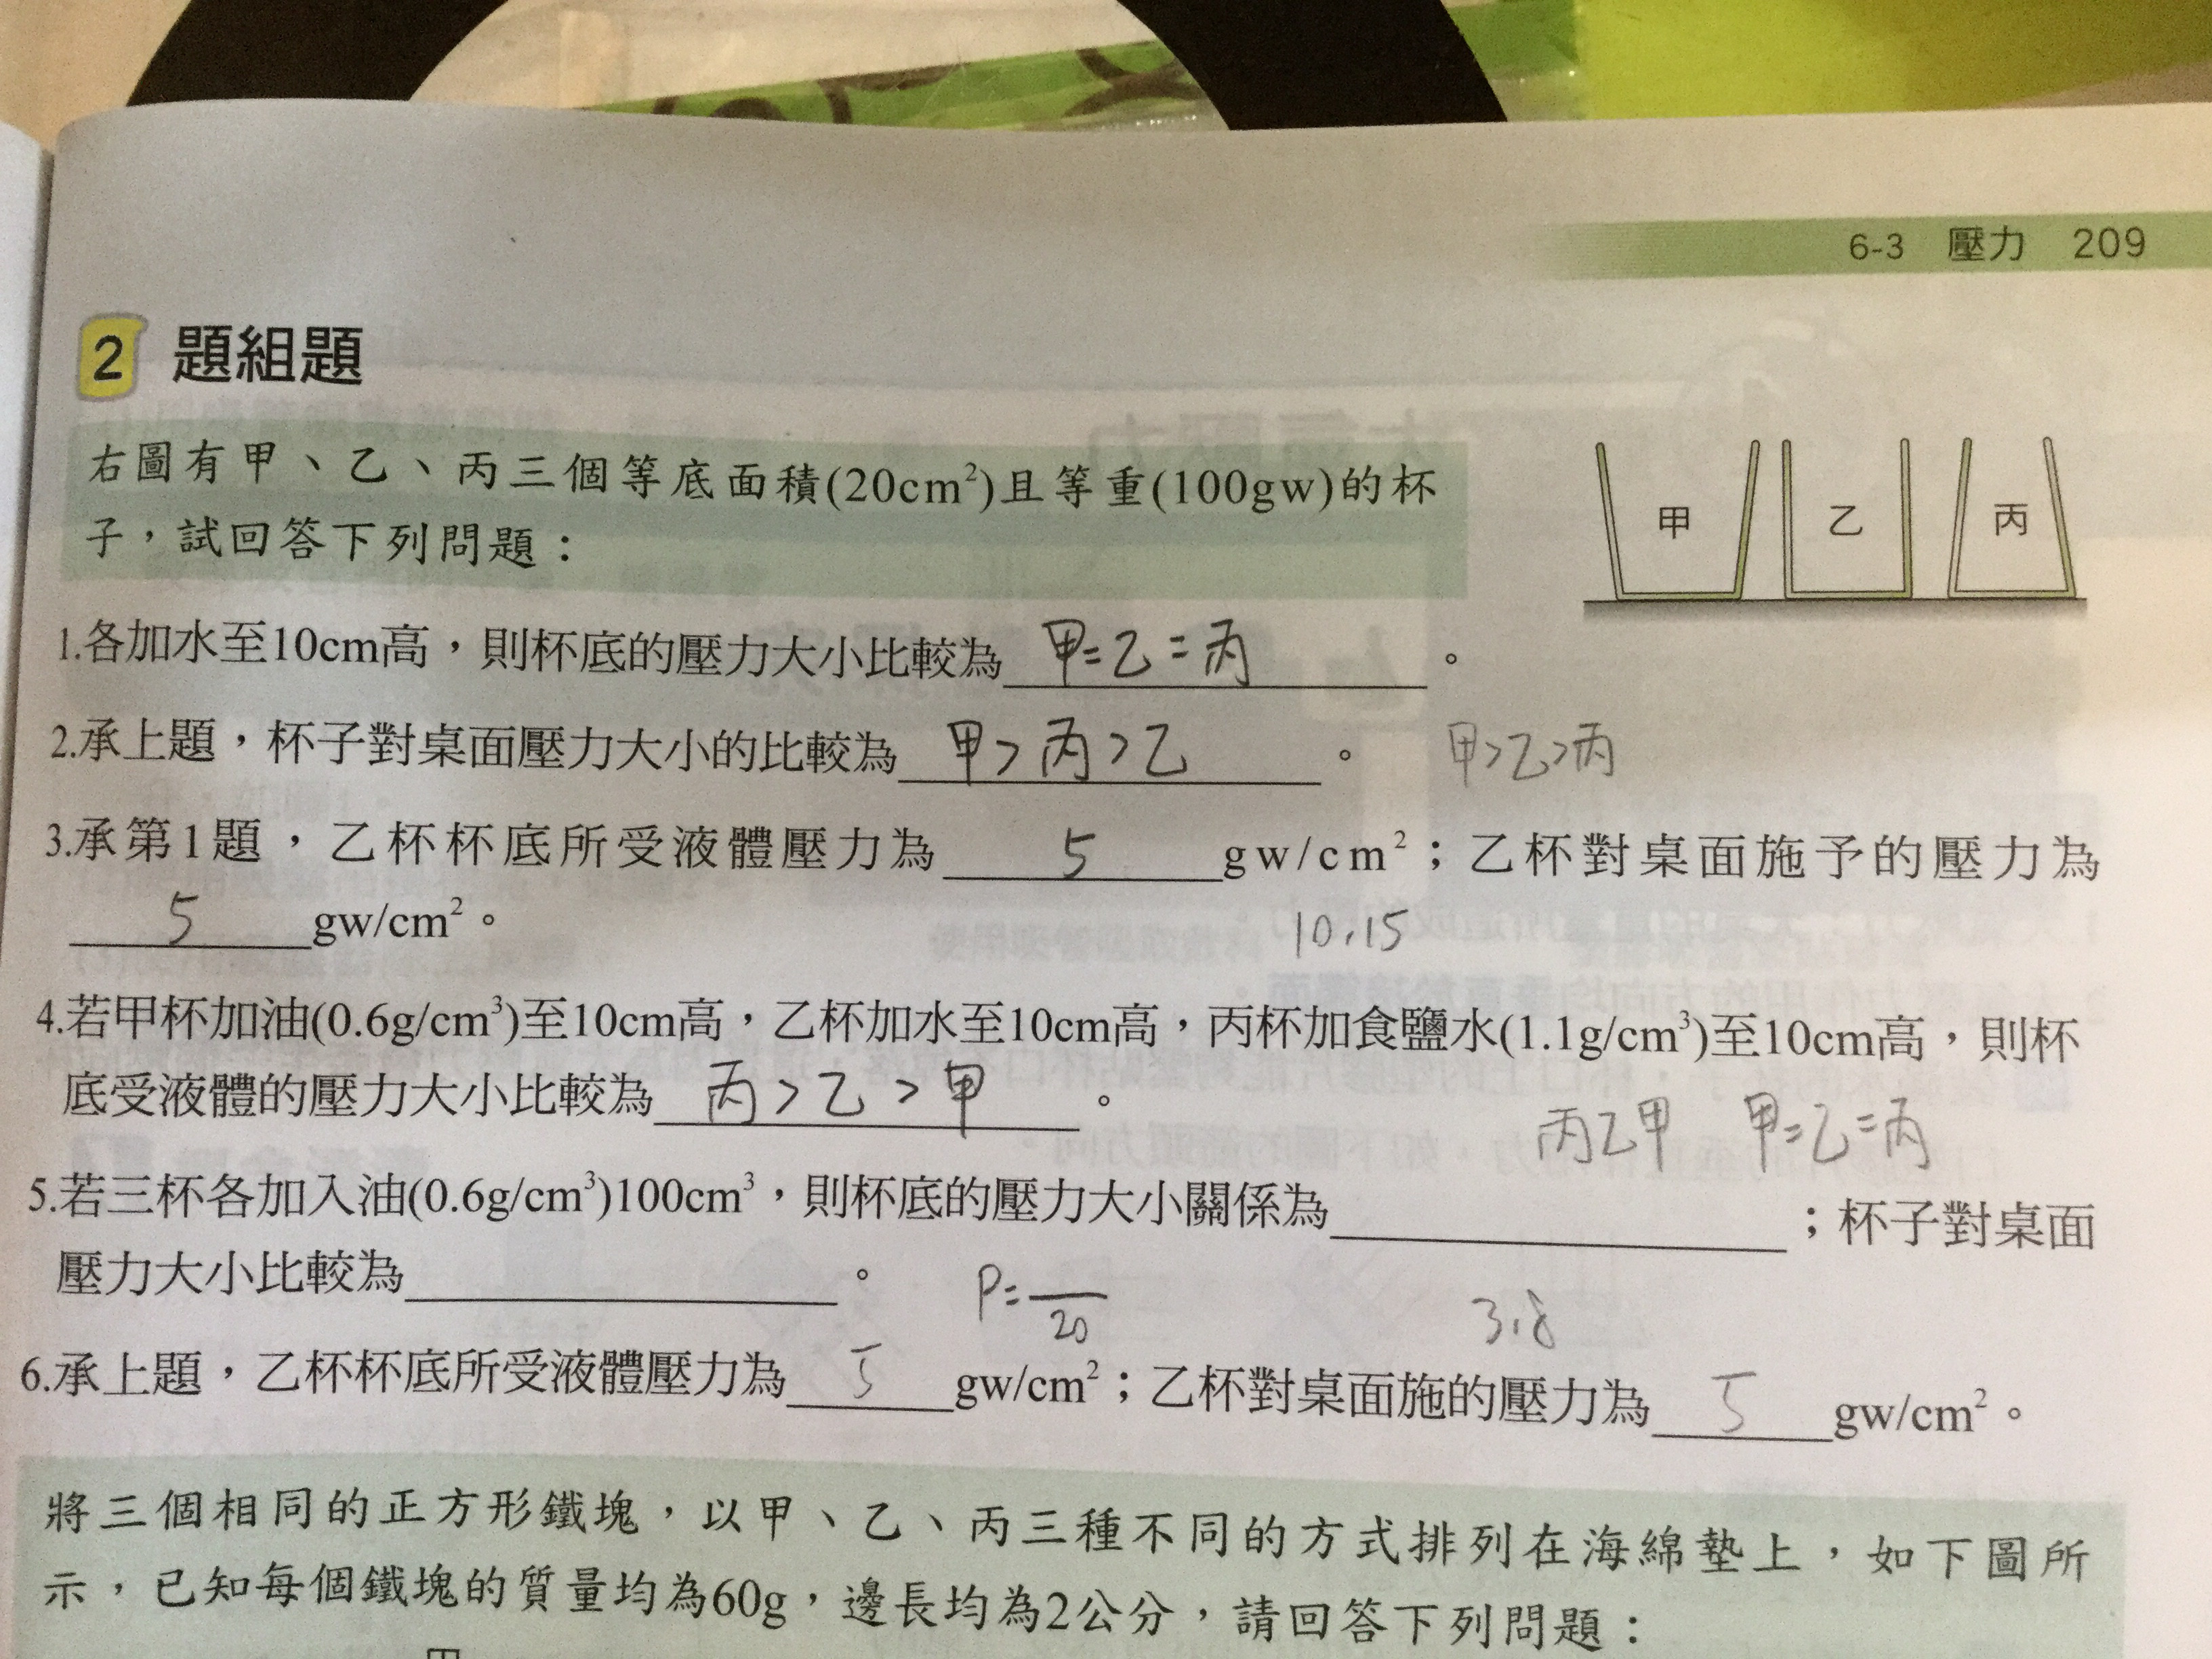 6-3 壓力 209
2 題組題
右圖有甲、乙、丙三個等底面積(20cm²)且等重(100gw)的杯
子，試回答下列問題：
甲 乙 丙
1.各加水至10cm高，則杯底的壓力大小比較為 甲=乙=丙 。
2.承上題，杯子對桌面壓力大小的比較為 甲>丙>乙 。 甲>乙>丙
3.承第1題，乙杯杯底所受液體壓力為 5 gw/cm²；乙杯對桌面施予的壓力為
5 gw/cm²。
10,15
4.若甲杯加油(0.6g/cm³)至10cm高，乙杯加水至10cm高，丙杯加食鹽水(1.1g/cm³)至10cm高，則杯
底受液體的壓力大小比較為 丙>乙>甲 。
丙乙甲 甲=乙=丙
5.若三杯各加入油(0.6g/cm³)100cm³，則杯底的壓力大小關係為 ；杯子對桌面
壓力大小比較為 。
P=—/20
3,8
6.承上題，乙杯杯底所受液體壓力為 5 gw/cm²；乙杯對桌面施的壓力為 5 gw/cm²。
將三個相同的正方形鐵塊，以甲、乙、丙三種不同的方式排列在海綿墊上，如下圖所
示，已知每個鐵塊的質量均為60g，邊長均為2公分，請回答下列問題：